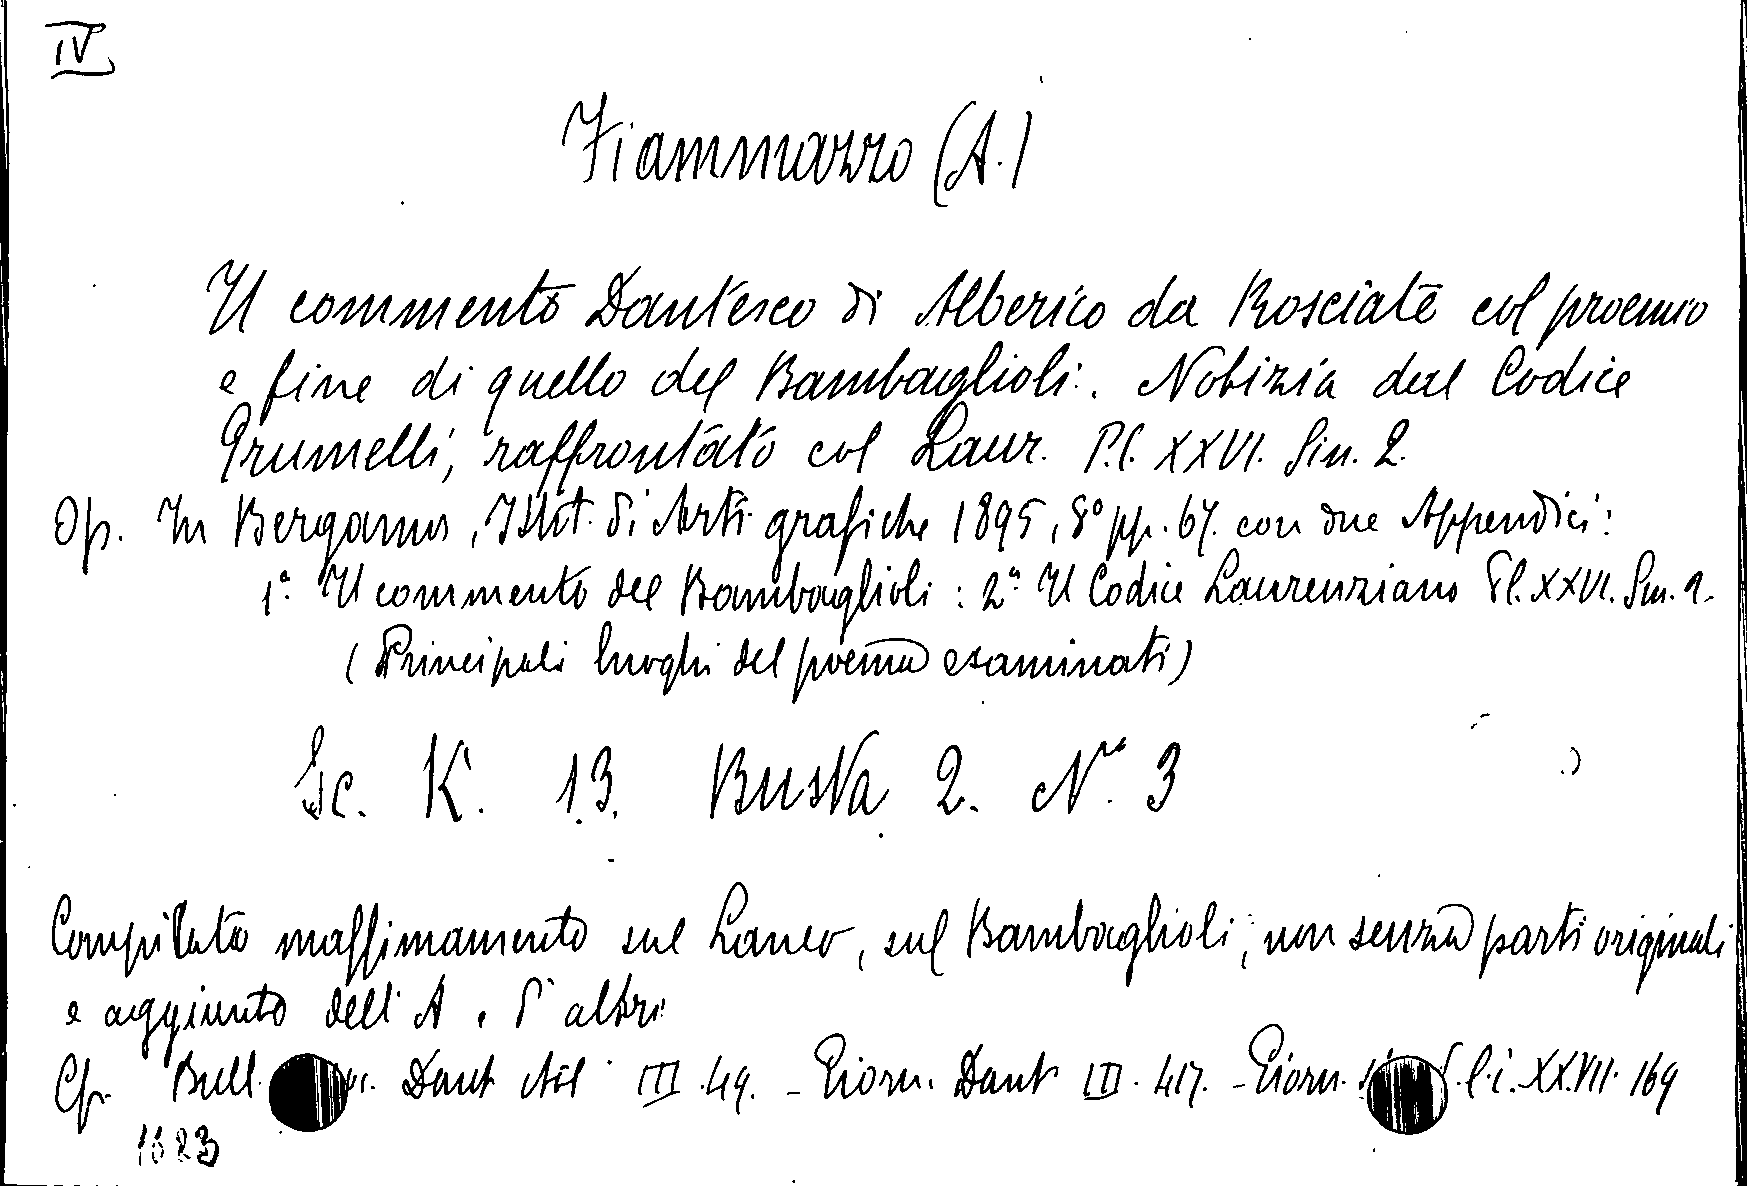 IV
Fiammazzo (A.)
Il commento Dantesco di Alberico da Rosciate col proemio
e fine di quello del Bambaglioli. Notizia del Codice
Grumelli, raffrontato col Laur. Pl. XXVI. Sin. 2.
Op. In Bergamo, Istit. di Arti grafiche 1895, 8° pp. 67. con due Appendici:
1ª Il commento del Bambaglioli: 2ª Il Codice Laurenziano Pl. XXVI. Sin. 2.
(Principali luoghi del poema esaminati)
Sc. K. 13. Busta 2. N° 3
Compilato massimamente sul Laneo, sul Bambaglioli, non senza parti originali
e aggiunte dell'A. e d'altri
Cfr. Bull. Dant. III. 49. - Giorn. Dant. III. 417. - Giorn. l. i. XXVII. 169
1623